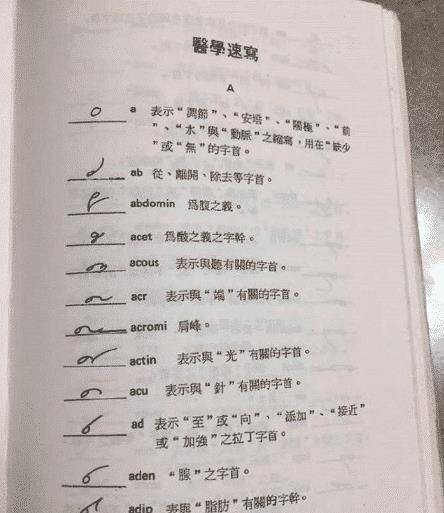 醫學速寫
A
a 表示“調節”、“安培”、“陽極”、“前
”、“水”與“動脈”之縮寫，用在“缺少
”或“無”的字首。
ab 從、離開、除去等字首。
abdomin 爲腹之義。
acet 爲酸之義之字幹。
acous 表示與聽有關的字首。
acr 表示與“端”有關的字首。
acromi 肩峰。
actin 表示與“光”有關的字首。
acu 表示與“針”有關的字首。
ad 表示“至”或“向”、“添加”、“接近”
或“加強”之拉丁字首。
aden “腺”之字首。
adip 表與“脂肪”有關的字幹。